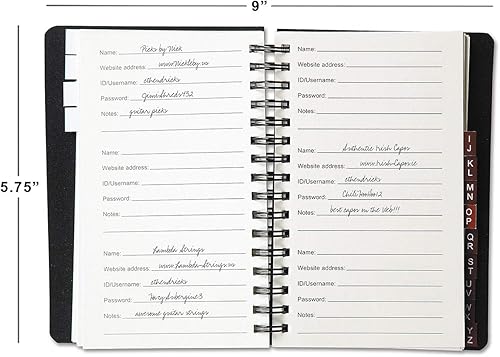 9”
5.75”
Name: Picks by Nick
Website address: www.Nickleby.us
ID/Username: ethendricks
Password: GimiShreds432
Notes: guitar picks
Name:
Website address:
ID/Username:
Password:
Notes:
Name: Lambda Strings
Website address: www.Lambda-Strings.us
ID/Username: ethendricks
Password:
Notes: awesome guitar strings
Name:
Website address:
ID/Username:
Password:
Notes:
Name: Authentic Irish Capos
Website address: www.Irish-Capos.ie
ID/Username: ethendricks
Password:
Notes: best capos on the Web!!!
Name:
Website address:
ID/Username:
Password:
Notes:
I
J
K
L
M
N
O
P
Q
R
S
T
U
V
W
X
Y
Z